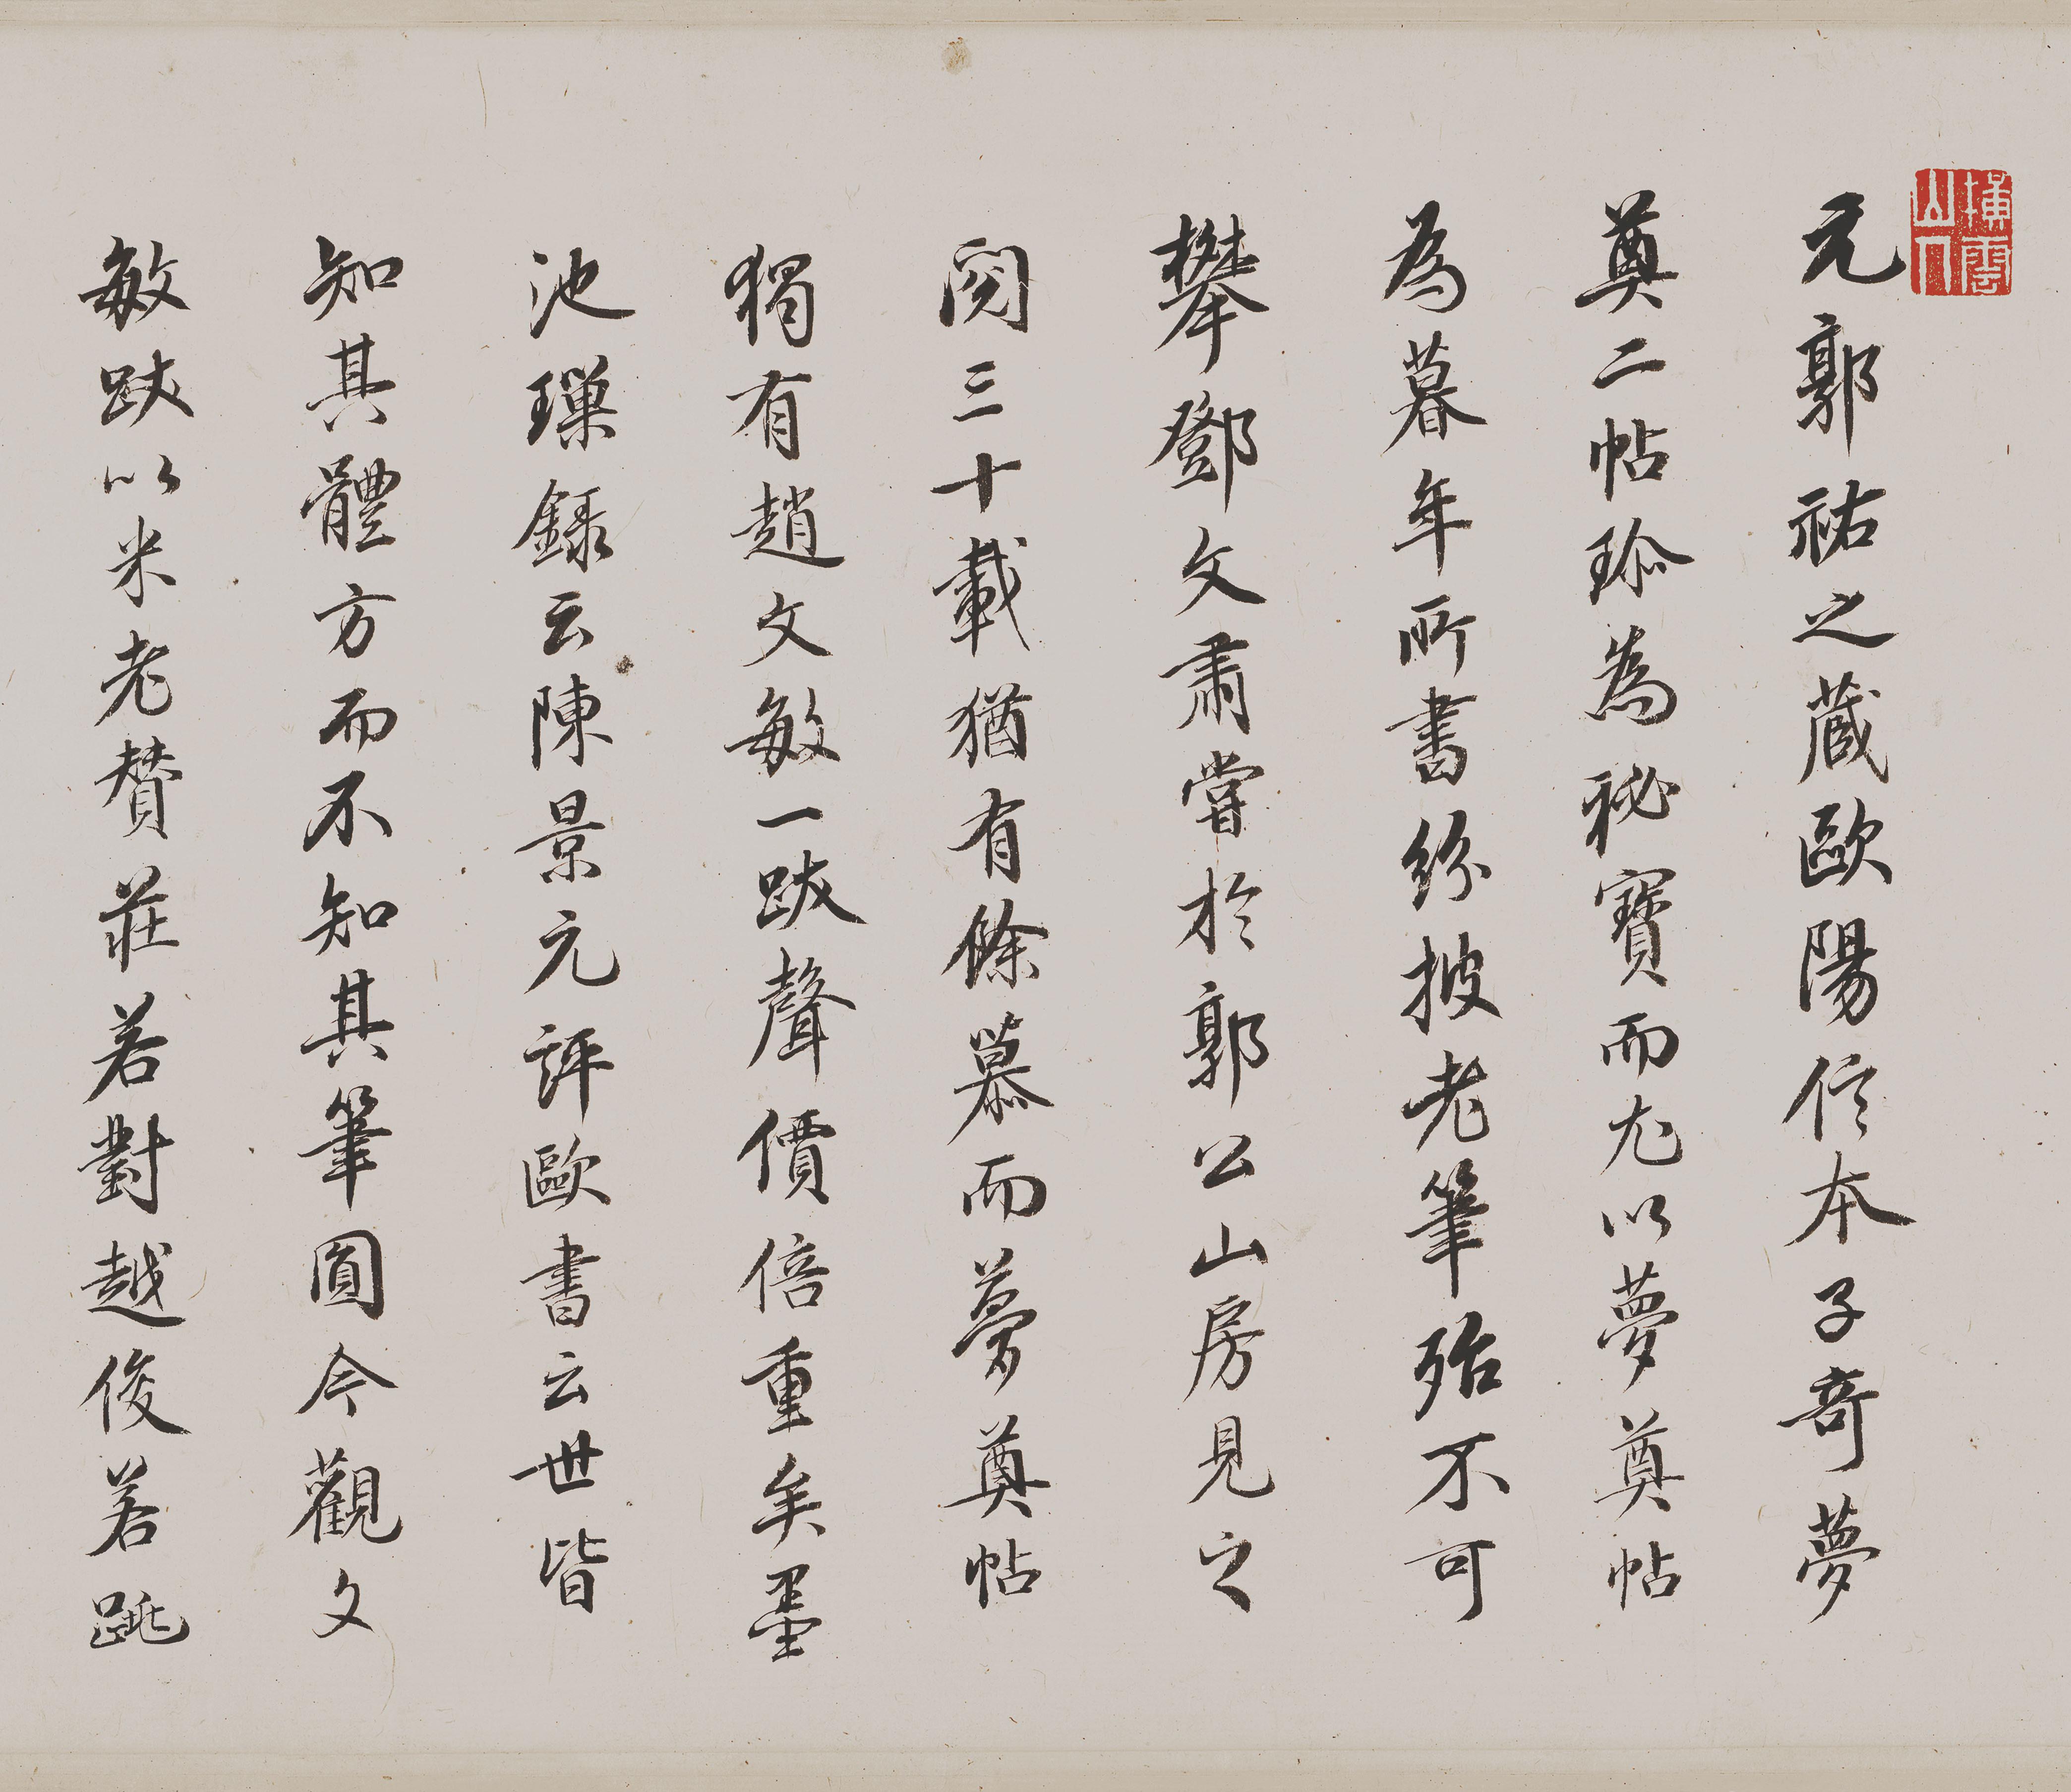 橫雲山人
元郭祐之藏歐陽信本子奇夢
奠二帖珎為祕寶而尤以夢奠帖
為暮年所書紛披老筆殆不可
攀鄧文肅嘗於郭公山房見之
閱三十載猶有餘慕而夢奠帖
獨有趙文敏一跋聲價倍重矣墨
池璅錄云陳景元評歐書云世皆
知其體方而不知其筆圓今觀文
敏跋以米老贊莊若對越俊若跳